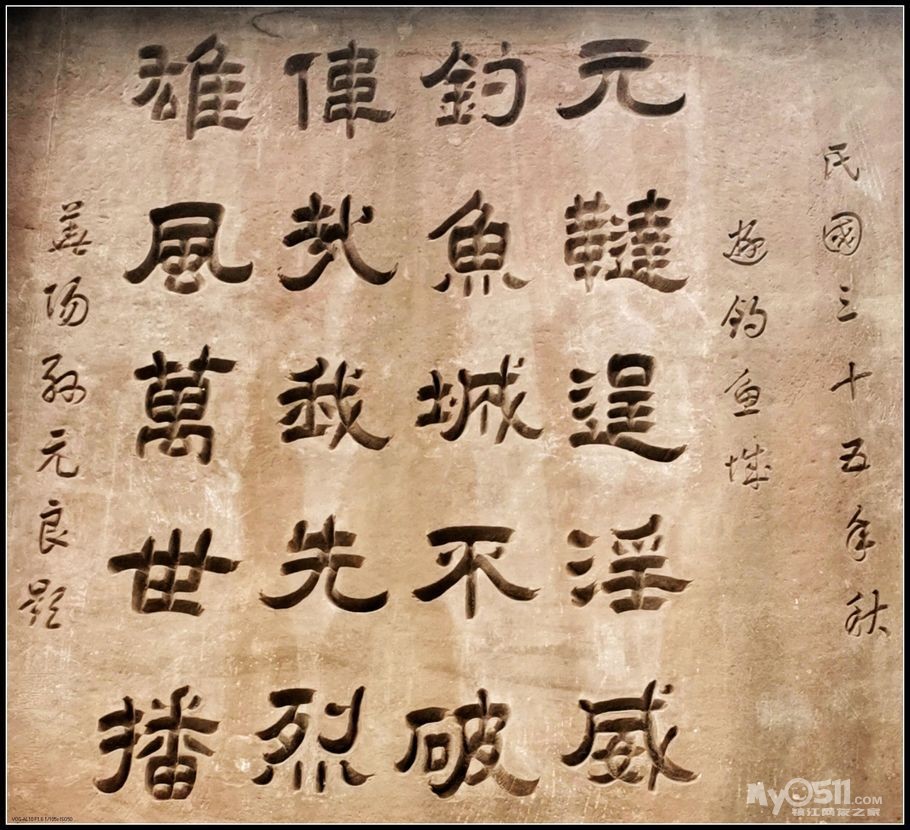 民國三十五年秋
遊釣魚城
元韃逞淫威
釣魚城不破
偉哉我先烈
雄風萬世播
益陽孫元良題
My0511.COM
镇江网友之家
VOG-AL10 F1.6 1/105s ISO50